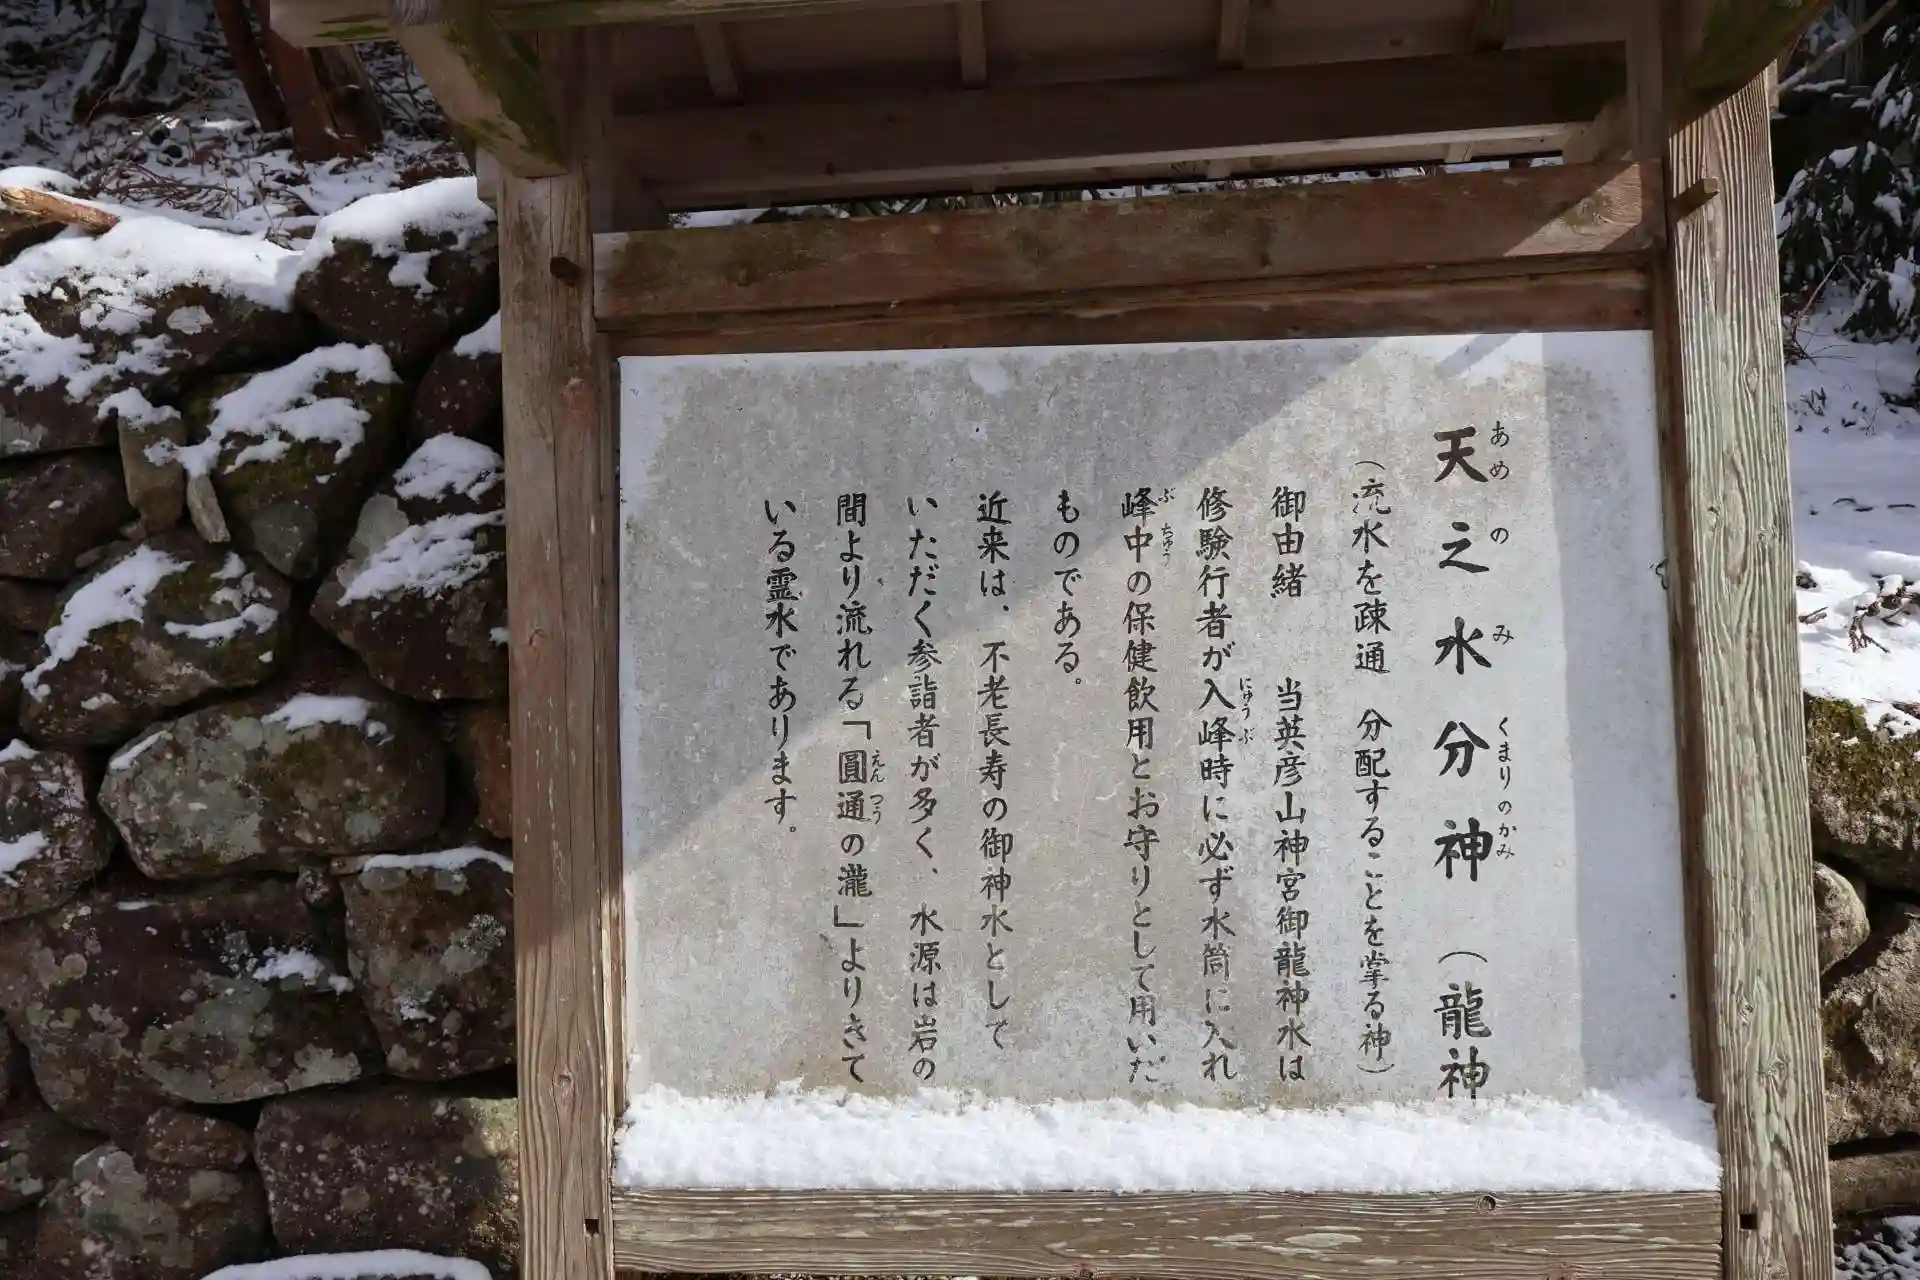 天之水分神（龍神
あめのみくまりのかみ
（流水を疎通　分配することを掌る神）
御由緒　当英彦山神宮御龍神水は
修験行者が入峰時に必ず水筒に入れ
にゅうぶ
峰中の保健飲用とお守りとして用いだ
ぶちゅう
ものである。
近来は、不老長寿の御神水として
いただく参詣者が多く、水源は岩の
間より流れる「圓通の瀧」よりきて
えんつう
いる霊水であります。